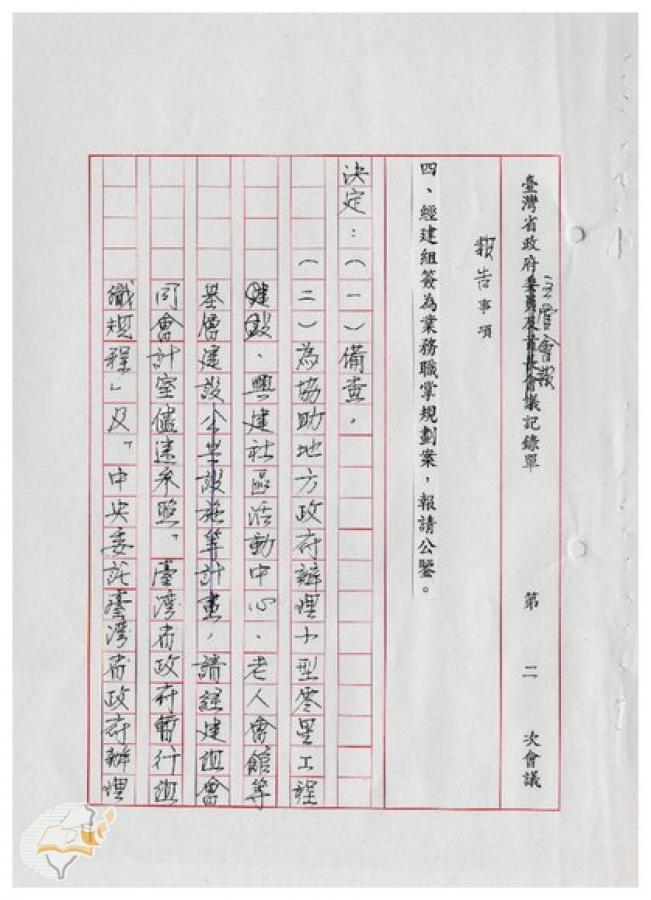 臺灣省政府主管會報會議記錄單 第二次會議
報告事項
四、經建組簽為業務職掌規劃案，報請公鑒。
決定：（一）備查。
（二）為協助地方政府辦理小型零星工程
建設、興建社區活動中心、老人會館等
基層建設公共設施等計畫，請經建組會
同會計室儘速參照「臺灣省政府暫行組
織規程」及「中央委託臺灣省政府辦理